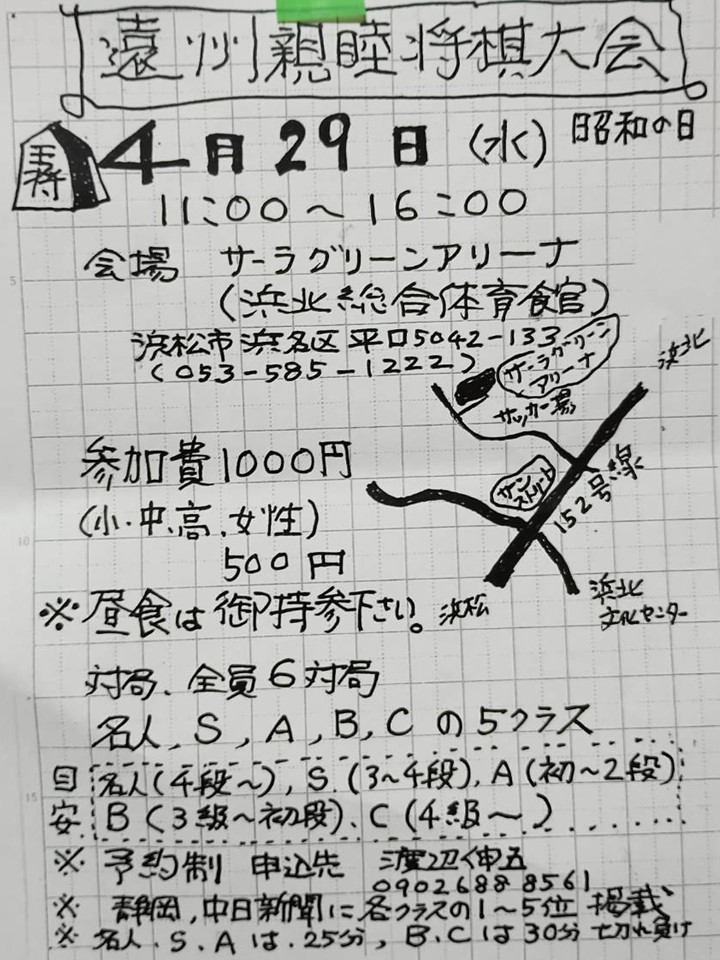 遠州親睦将棋大会
王将
4月29日(水) 昭和の日
11:00~16:00
会場 サーラグリーンアリーナ
(浜北総合体育館)
浜松市浜名区平口5042-133
(053-585-1222)
サーラグリーン
アリーナ
浜北
サッカー場
サン
ストリート
152号線
浜松
浜北
文化センター
参加費1000円
(小.中.高.女性)
500円
※昼食は御持参下さい。
対局、全員6対局
名人,S,A,B,Cの5クラス
目安
名人(4段~),S(3~4段),A(初~2段)
B(3級~初段)、C(4級~)
※ 予約制 申込先 渡辺伸五
09026888561
※ 静岡,中日新聞に各クラスの1~5位 掲載
※ 名人.S.Aは.25分,B.Cは30分 切れ負け